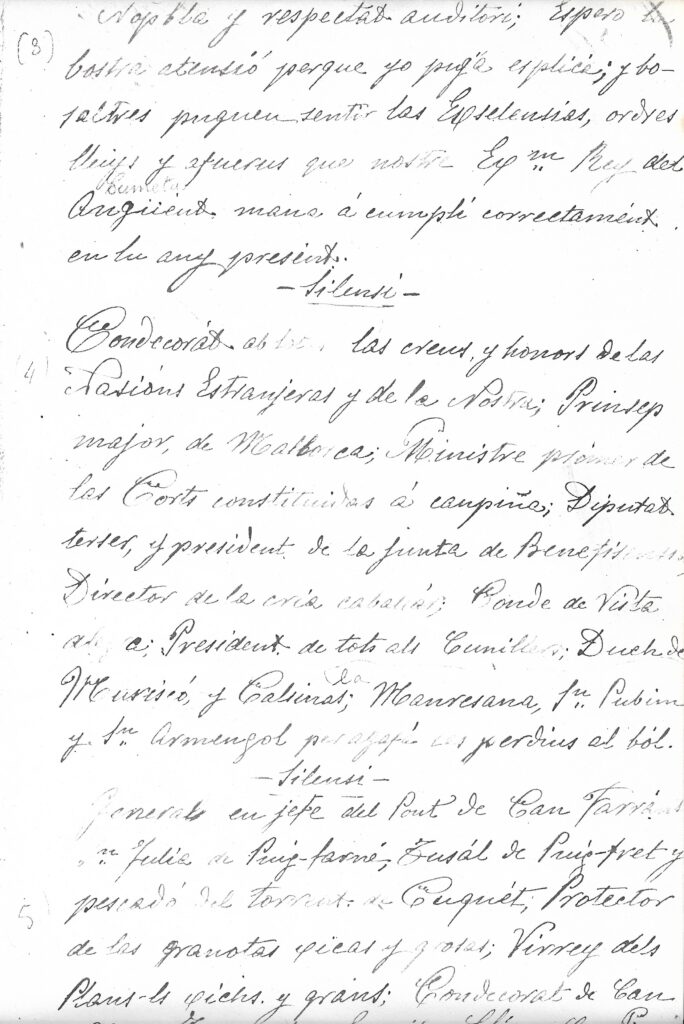 Nobbla y respectat auditori; Espero la
(3)
bostra atensió perque yo puga esplicá; y bo-
saltres pugueu sentir las Exselensias, ordres
lleys y afuerus que nostre Ex.m Rey del
Angüent mana á cumplí correctament
en lu any present.
- Silensi -
Condecorát las creus, y honors de las
(4)
Nasións Estranjeras y de la Nostra; Prinsep
major, de Mallorca; Ministre primer de
las Corts constituidas á canpiña; Diputat
terser, y president de la junta de
Director de la cria caballár; Conde de Vista
President de tots als Cunillers; Duch de
Muriscó, y Calsinas; la Manresana, Sn. Pubim
y Sn. Armengol per agafá les perdius al ból.
- Silensi -
Generals en jefe del Pont de Can Farrá
Sn Juliá de Puig-farné, Fusál de Puig-fret y
pescadó del torrent de Cuquét; Protector
5
de las granotas xicas y grosas; Virrey dels
Plans-ls xichs y grans; Condecorat de Can